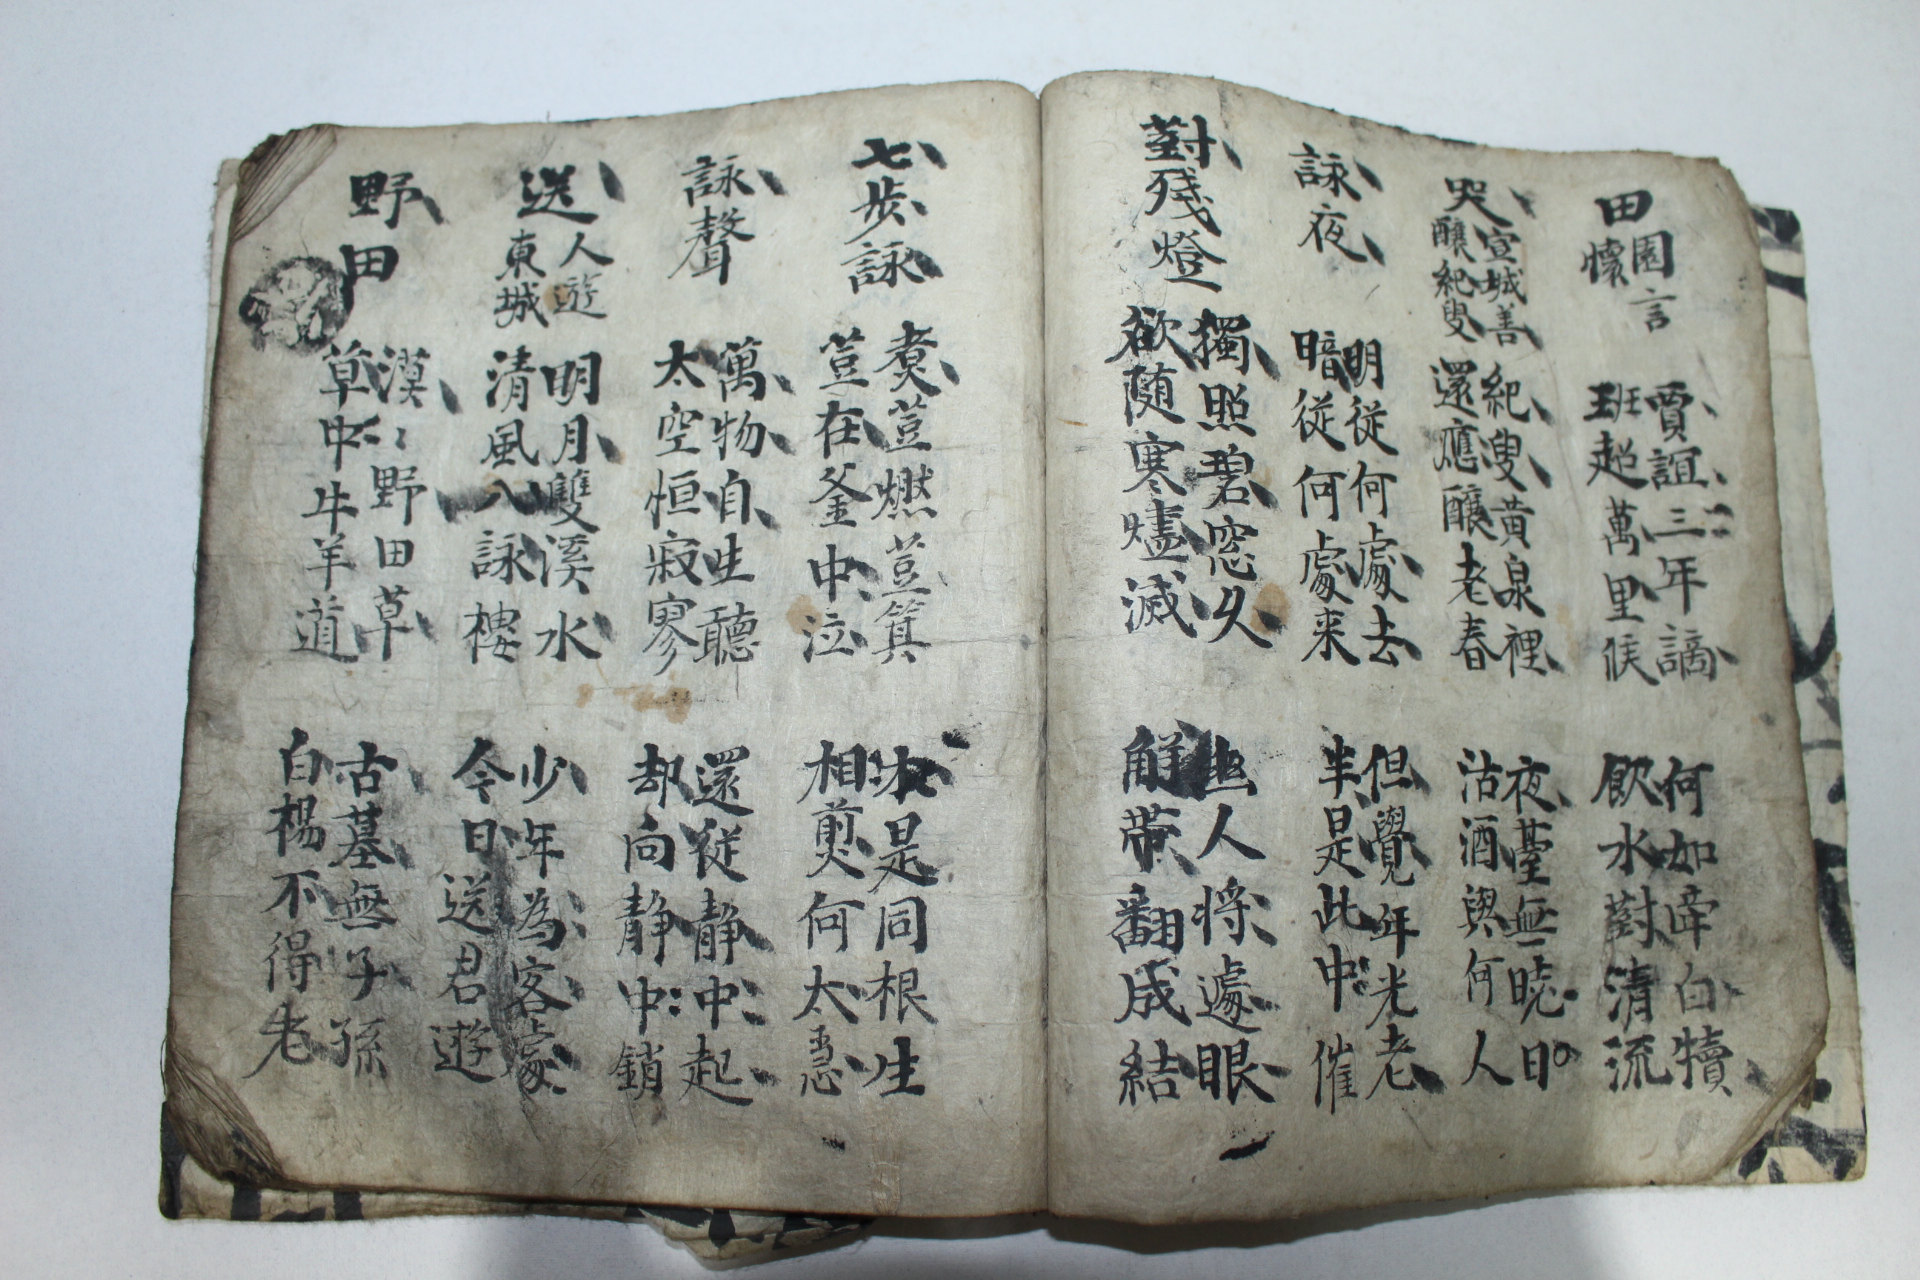 田園言懷
賈誼三年謫
班超萬里侯
何如牽白犢
飲水對清流
哭宣城善釀紀叟
紀叟黃泉裡
還應釀老春
夜臺無曉日
沽酒與何人
詠夜
明從何處去
暗從何處来
但覺年年光老
半是此中催
對殘燈
獨照碧窓久
欲随寒燼滅
幽人将遽眠
解带翻成結
七步詠
煮荳燃荳箕
荳在釜中泣
本是同根生
相煎何太急
詠聲
萬物自生聽
太空恒寂寥
還從静中起
却向静中銷
送人遊東城
明月雙溪水
清風八詠樓
少年為客處
今日送君遊
野田
漠〻野田草
草中牛羊道
古墓無子孫
白楊不得老